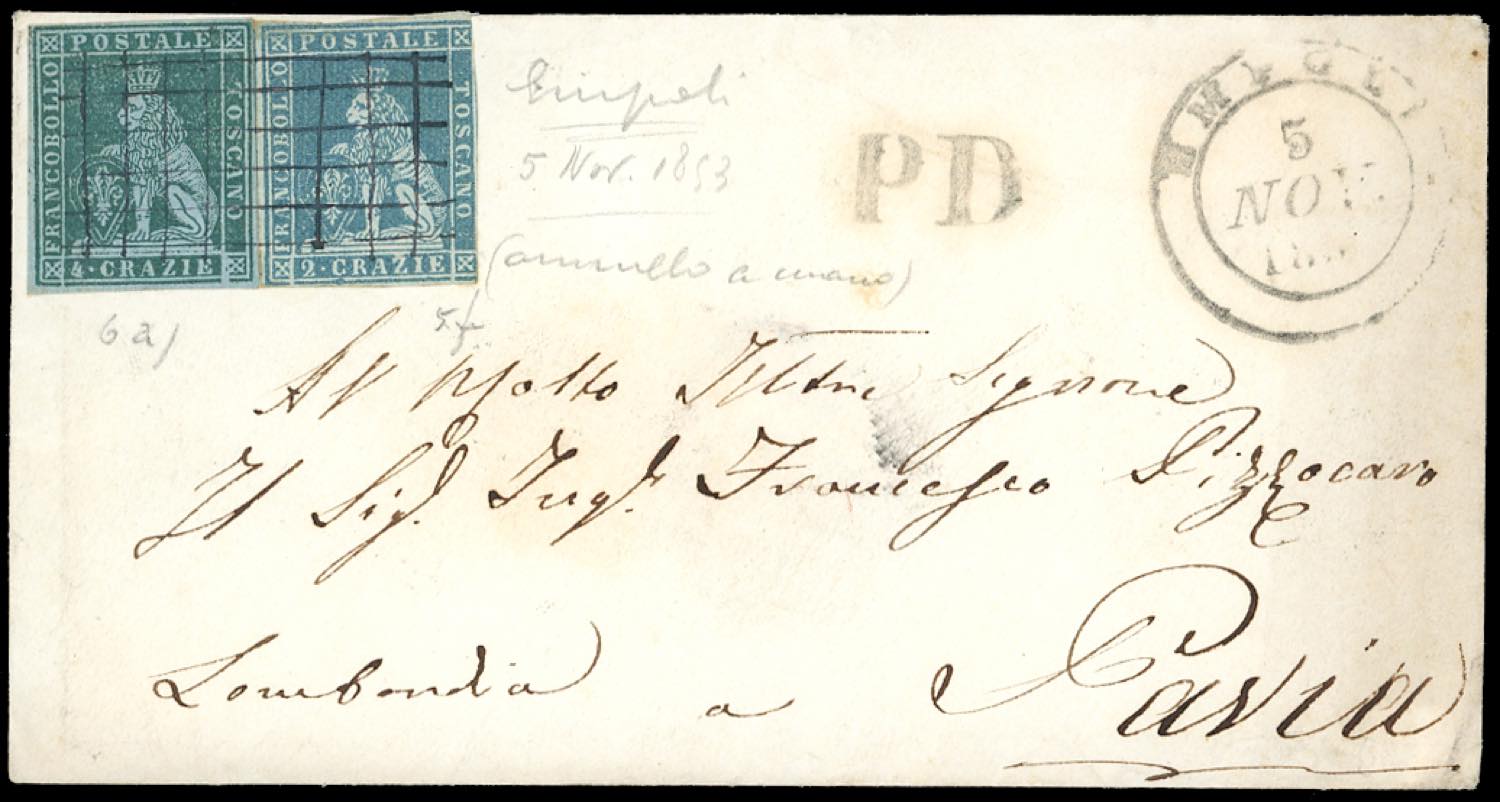 POSTALE
FRANCOBOLLO
TOSCANO
4·CRAZIE
POSTALE
FRANCOBOLLO
TOSCANO
2·CRAZIE
Empoli
5 Nov. 1853
(annullo a mano)
6a)
PD
5
NOV.
Al Molto Illtre Signore
Il Sigr. Ingr. Francesco Pizzocaro
Lombardia a Pavia